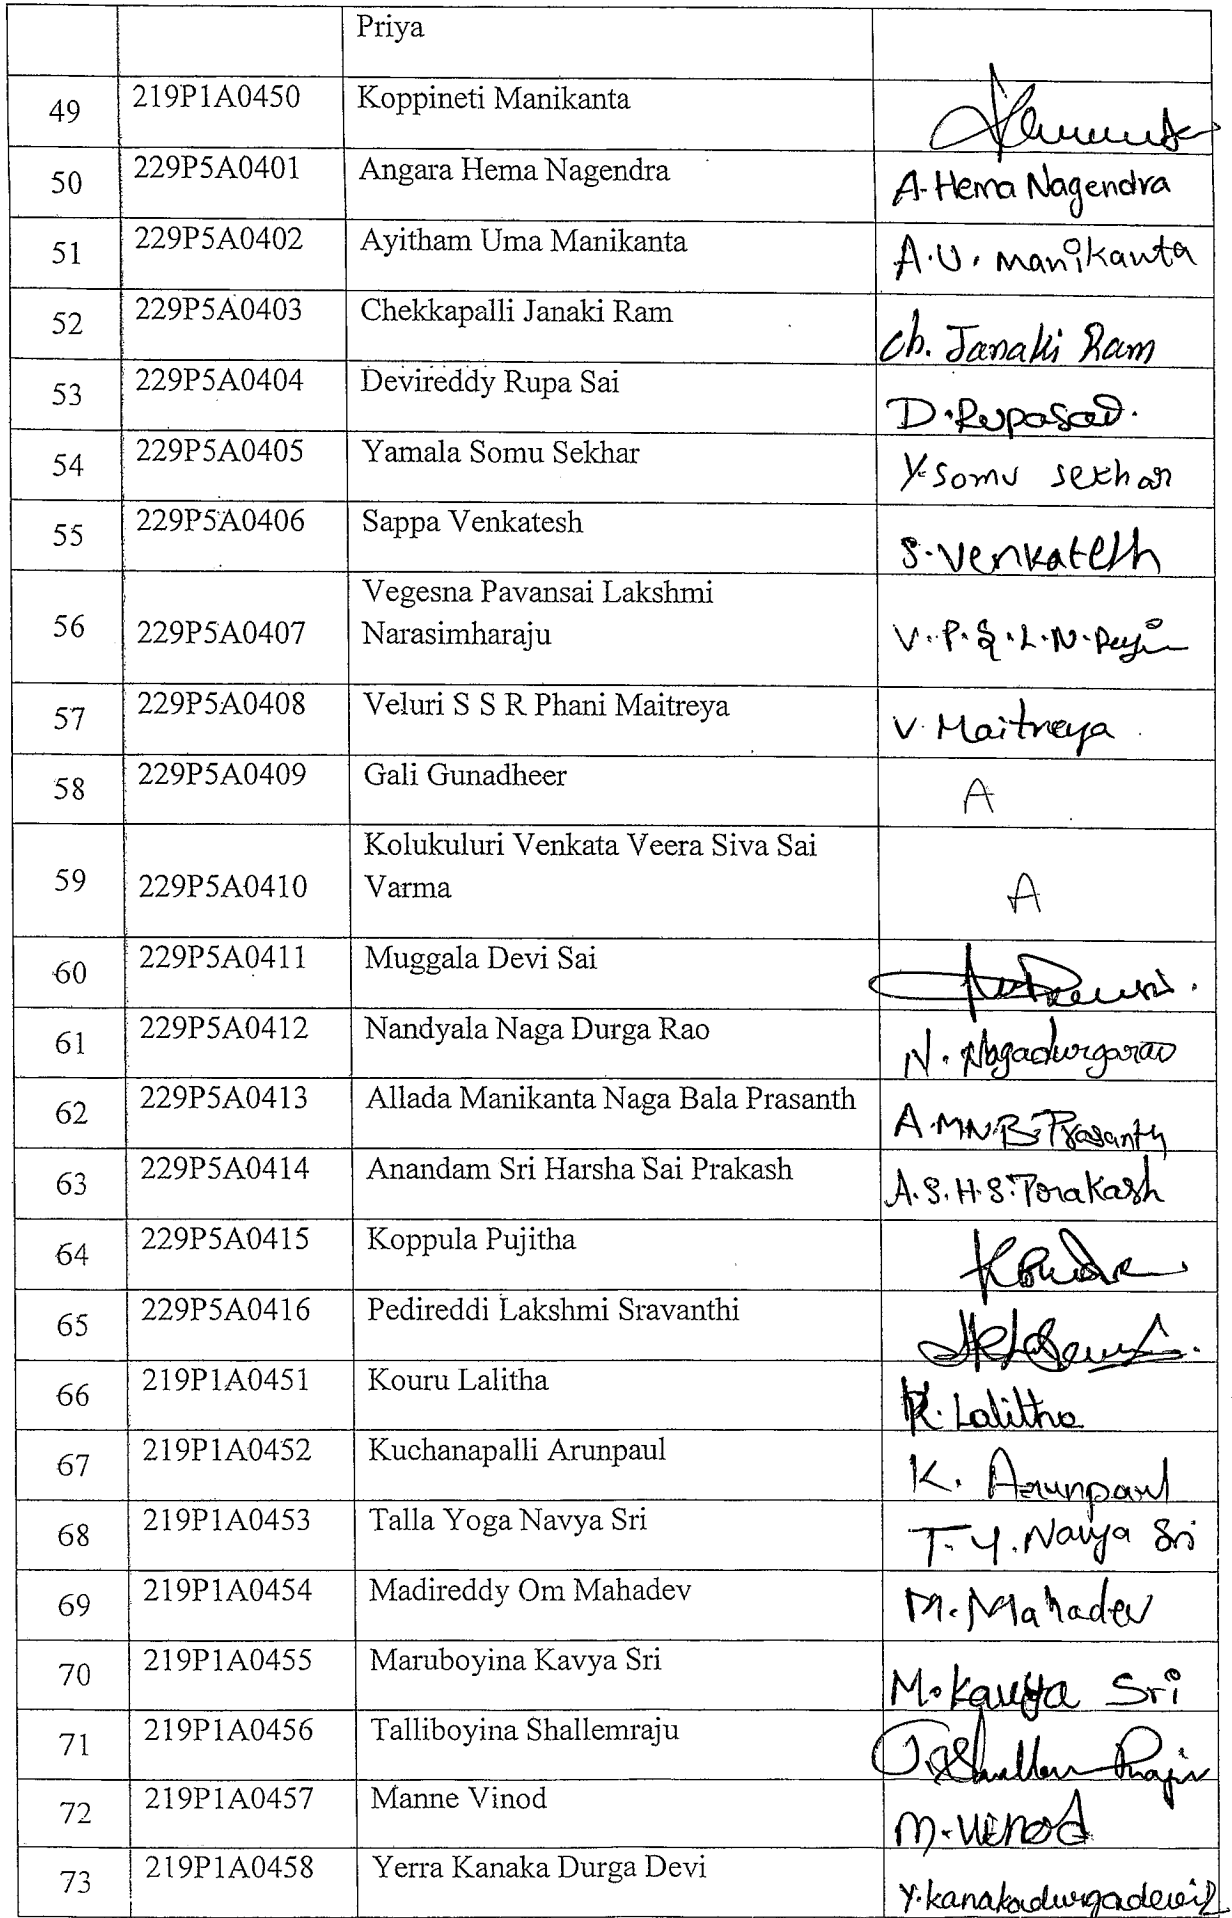 Priya
49 219P1A0450 Koppineti Manikanta
50 229P5A0401 Angara Hema Nagendra A. Hema Nagendra
51 229P5A0402 Ayitham Uma Manikanta A.U. Manikanta
52 229P5A0403 Chekkapalli Janaki Ram Ch. Janaki Ram
53 229P5A0404 Devireddy Rupa Sai D. Rupasai.
54 229P5A0405 Yamala Somu Sekhar Y. Somu Sekhar
55 229P5A0406 Sappa Venkatesh S. Venkatesh
Vegesna Pavansai Lakshmi
56 229P5A0407 Narasimharaju V.P.S.L.N.
57 229P5A0408 Veluri S S R Phani Maitreya V. Maitreya
58 229P5A0409 Gali Gunadheer A
Kolukuluri Venkata Veera Siva Sai
59 229P5A0410 Varma A
60 229P5A0411 Muggala Devi Sai
61 229P5A0412 Nandyala Naga Durga Rao N. Nagadurgarao
62 229P5A0413 Allada Manikanta Naga Bala Prasanth A.M.N.B. Prasanth
63 229P5A0414 Anandam Sri Harsha Sai Prakash A.S.H.S. Prakash
64 229P5A0415 Koppula Pujitha
65 229P5A0416 Pedireddi Lakshmi Sravanthi
66 219P1A0451 Kouru Lalitha K. Lalitha
67 219P1A0452 Kuchanapalli Arunpaul K. Arunpaul
68 219P1A0453 Talla Yoga Navya Sri T.Y. Navya Sri
69 219P1A0454 Madireddy Om Mahadev M. Mahadev
70 219P1A0455 Maruboyina Kavya Sri M. Kavya Sri
71 219P1A0456 Talliboyina Shallemraju
72 219P1A0457 Manne Vinod M. Vinod
73 219P1A0458 Yerra Kanaka Durga Devi Y. kanakadurgadevi